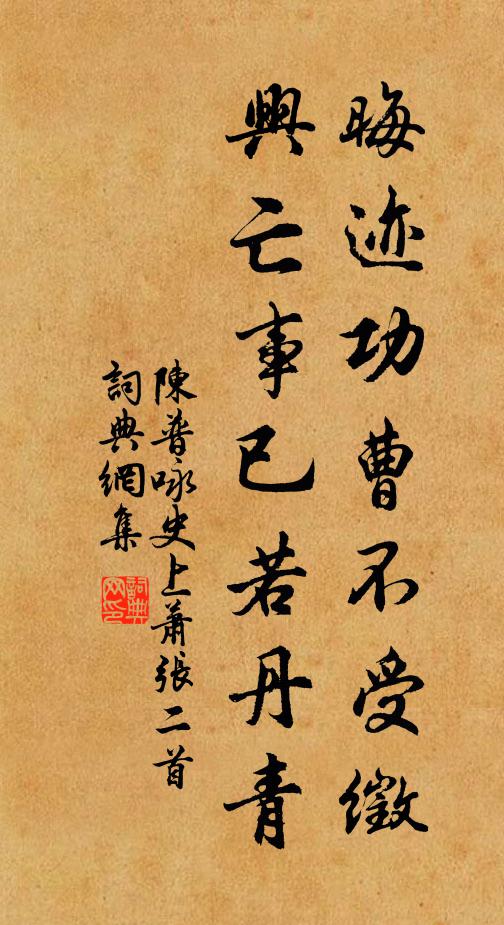 晦迹功曹不受徵
興亡事已若丹青
陳普咏史上蕭張二首
詞典網集
詞典
网印